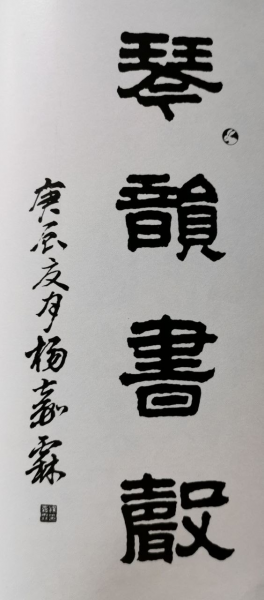 琴韻書聲
庚辰夏月楊嘉霖